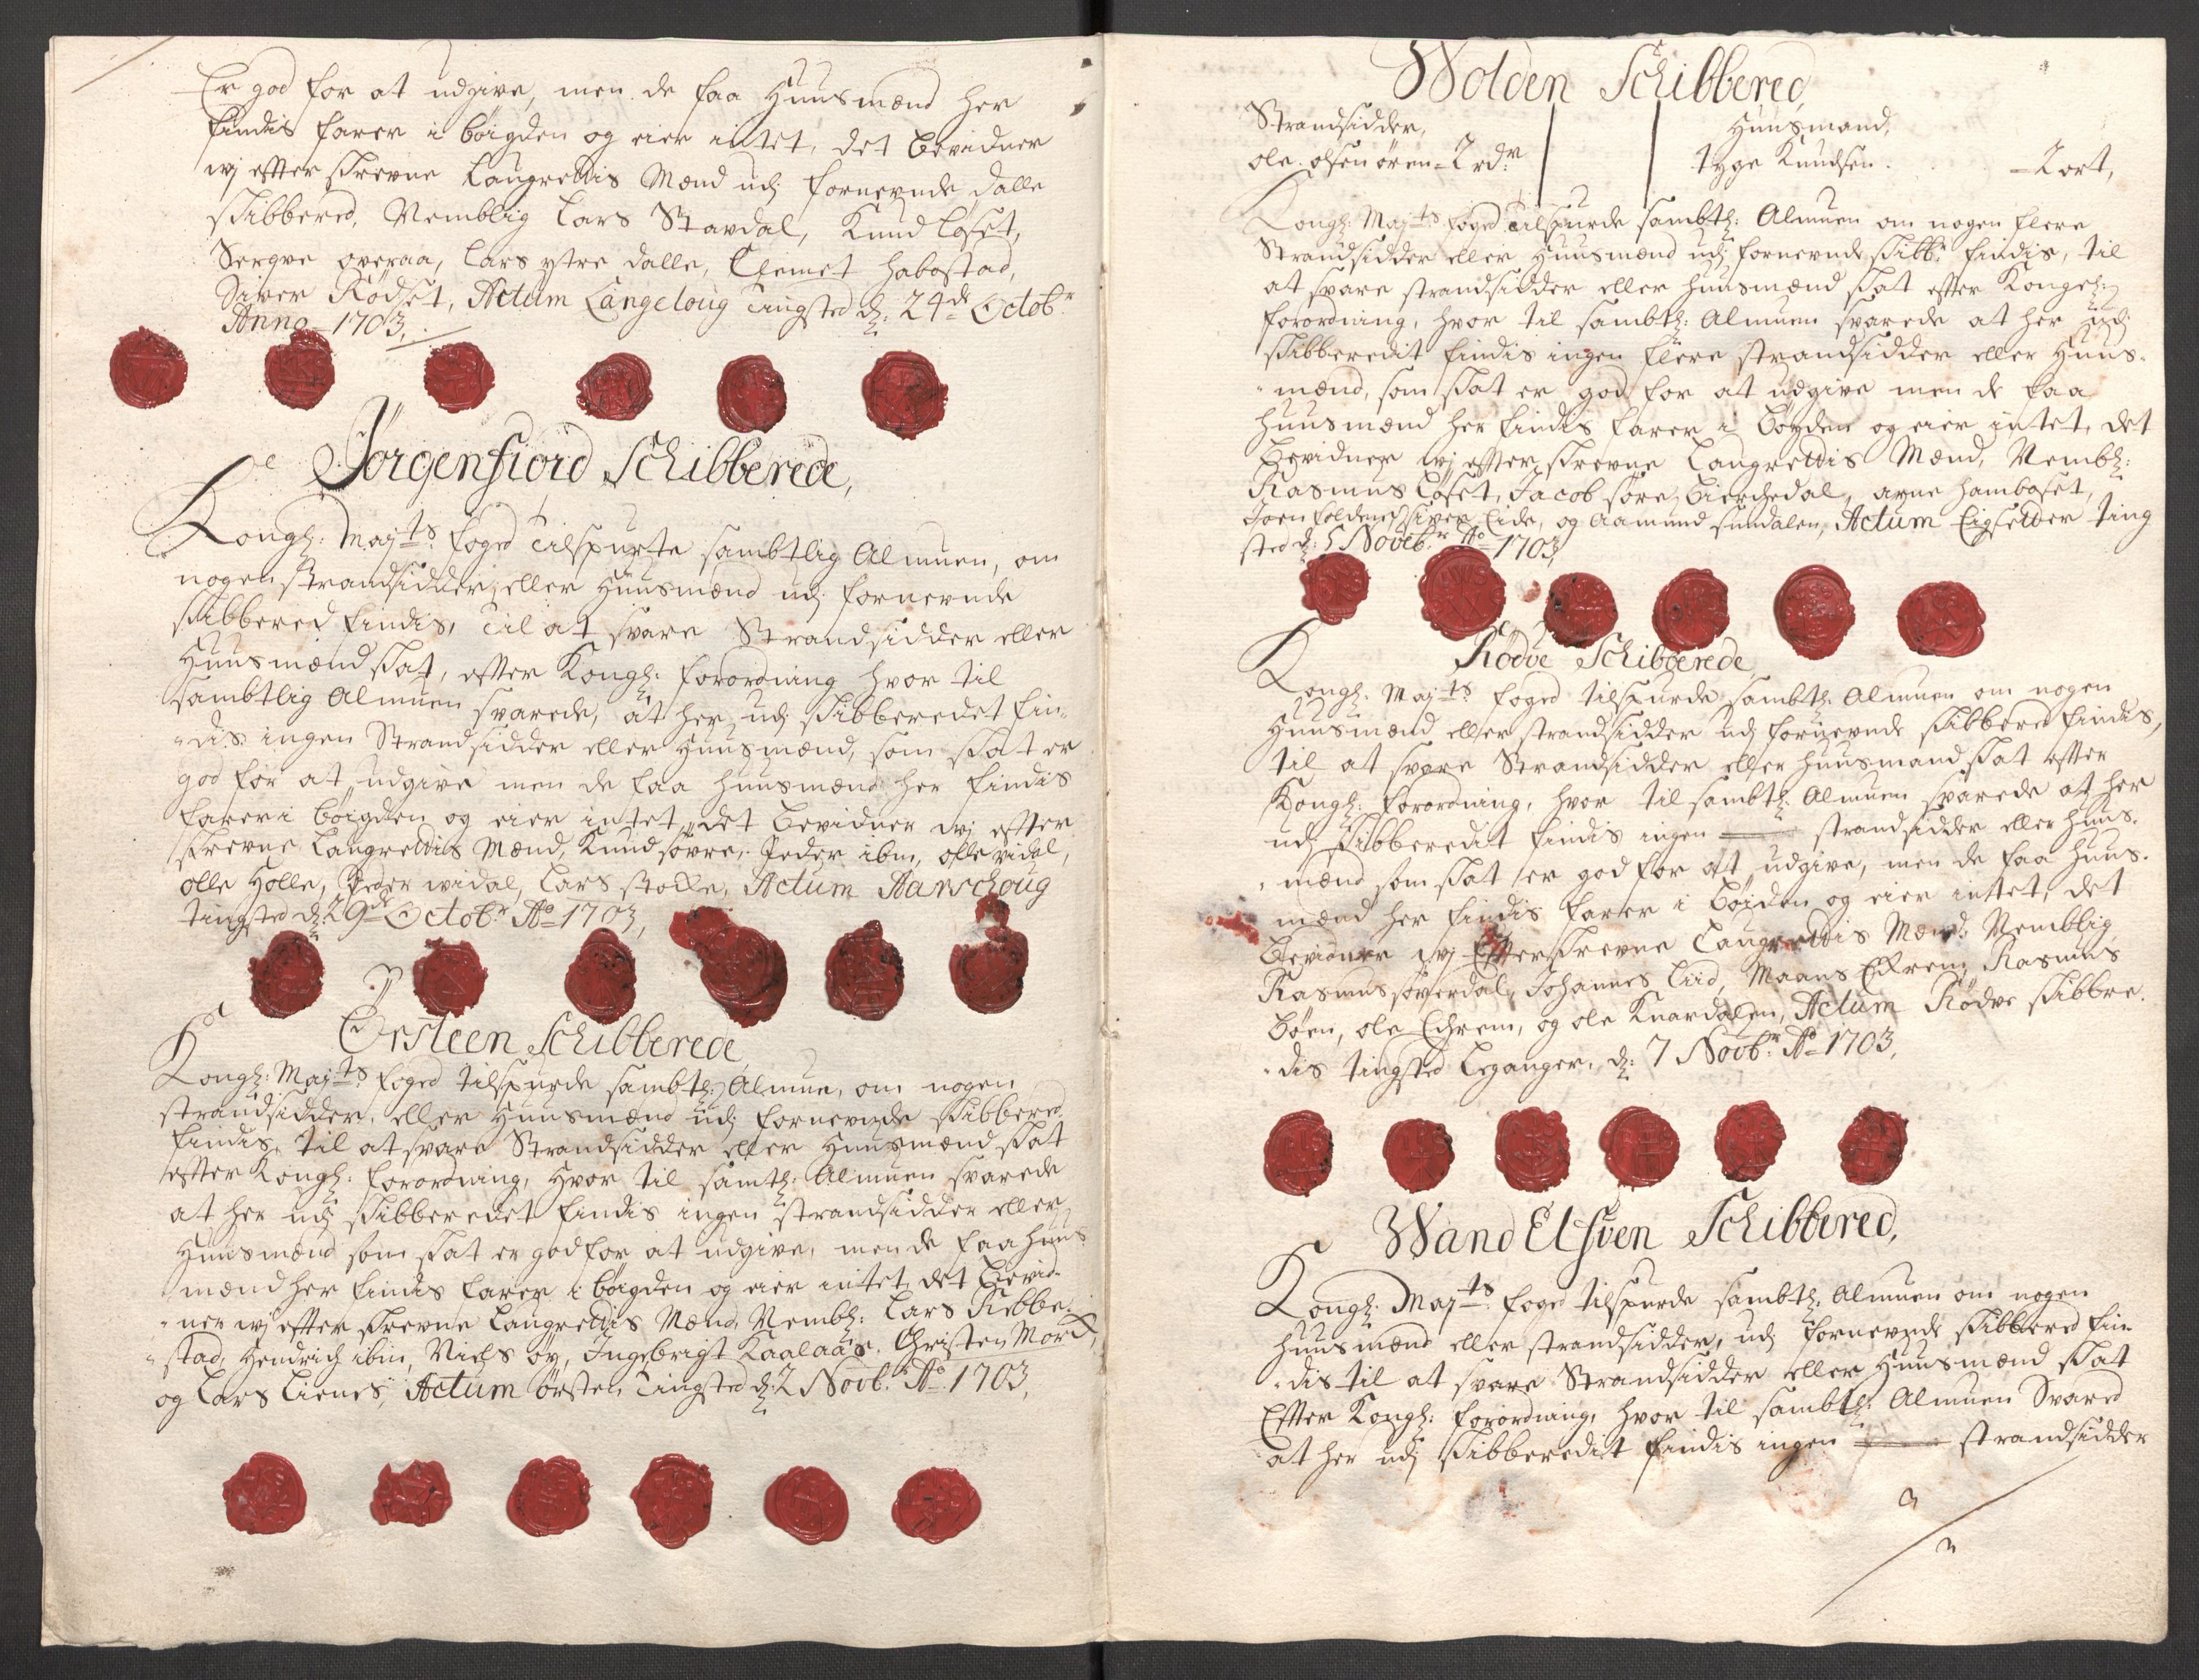 Er god for at udgive, men de faa Huusmænd her
findis farer i böigden og eier intet, det bevidner
wj efter skrevne Laugrettis Mænd udj fornevnde Dalle
skibbered, Nemblig Lars Stavdal, Knud Löset,
Sergve overaa, Lars ytre Dalle, Clemet Habostad,
Siver Rödset, Actum Langeloug Tingsted d: 24de Octobr
Anno 1703,
Jörgenfiord Schibberede,
Kongl: Majts foged Tilspurte sambtlig Almuen, om
nogen strandsidder eller Huusmænd udj fornevnde
skibbered findis, Til at svare Strandsidder eller
Huusmænd skat, efter Kongl: forordning hvor til
sambtlig Almuen svarede, at her udj skibberedet fin-
dis ingen Strandsidder eller Huusmænd, som skat er
god for at udgive men de faa huusmænd her findis
farer i böigden og eier intet, det bevidner wj efter
skrevne Laugrettis Mænd, Knud søvre, Peder ibm, olle vidal,
olle Holle, Peder widal, Lars stokke, Actum Aarschoug
tingsted d: 29de Octobr Ao 1703,
Örsteen Schibberede
Kongl: Majts foged tilspurde sambtl: Almue, om nogen
strandsidder, eller Huusmænd udj fornevnde skibbered
findis, til at svare Strandsidder eller Huusmænd skat
efter Kongl: forordning, Hvor til samtl: Almuen svarede
at her udj skibberedet findis ingen strandsidder eller
Huusmænd som skat er god for at udgive, men de faa huus
mænd her findis farer i böigden og eier intet, det bevid-
ner wj efter skrevne Laugrettis Mænd, Nembl: Lars Rebbe-
stad, Hendrich ibm, Niels öy, Ingebrigt Kaalaas, Christen Mork,
og Lars Lienes, Actum örsten Tingsted d: 2 Novbr Ao 1703,
Wolden Schibbered,
Strandsidder, Huusmand,
ole olsen ören - 2 rdr tyge Knudsen - 2 ort,
Kongl: Majts foged Tilspurde sambtl: Almuen om nogen flere
Strandsidder eller Huusmænd udj fornevnde skibbr findis, til
at svare strandsidder eller huusmænd skat efter Kongl:
forordning, hvor til sambtl: Almuen svarede at her udj
skibberedit findis ingen flere strandsidder eller Huus-
mænd, som skat er god for at udgive men de faa
huusmænd her findis farer i böyden og eier intet, det
bevidner wj efter skrevne Laugrettis Mænd, Nembl:
Rasmus Löset, Jacob söre, bierchedal, arne hamboset,
Joen foldenes, siver Eide, og Aamund sundalen, Actum Eigsetter Ting
sted d: 5 Novbr Ao 1703,
Rödve Schibberede
Kongl: Majts foged tilspurde sambtl: Almuen om nogen
Huusmænd eller strandsidder udj fornevnde skibbered findis,
til at svare Strandsidder eller huusmand skat efter
Kongl: forordning, hvor til sambtl: Almuen svarede at her
udj skibberedit findis ingen strandsidder eller huus-
mænd som skat er god for at udgive, men de faa huus-
mænd her findis farer i böiden og eier intet, det
bevidner wj Efterskrevne Laugrettis Mænd, Nemblig
Rasmus söverdal, Johannes Liid, Maans Eckrem, Rasmus
böen, ole Echrem, og ole Knardalen, Actum Rödve skibbre-
dis tingsted Leganger, d: 7 Novbr Ao 1703,
Wand Elfven Schibbered,
Kongl: Majts foged tilspurde sambtl: Almuen om nogen
Huusmænd eller strandsidder, udj fornevnde skibbered fin-
dis til at svare Strandsidder eller Huusmænd skat
Efter Kongl: forordning, hvor til sambtl: Almuen Svared
at her udj skibberedit findis ingen strandsidder